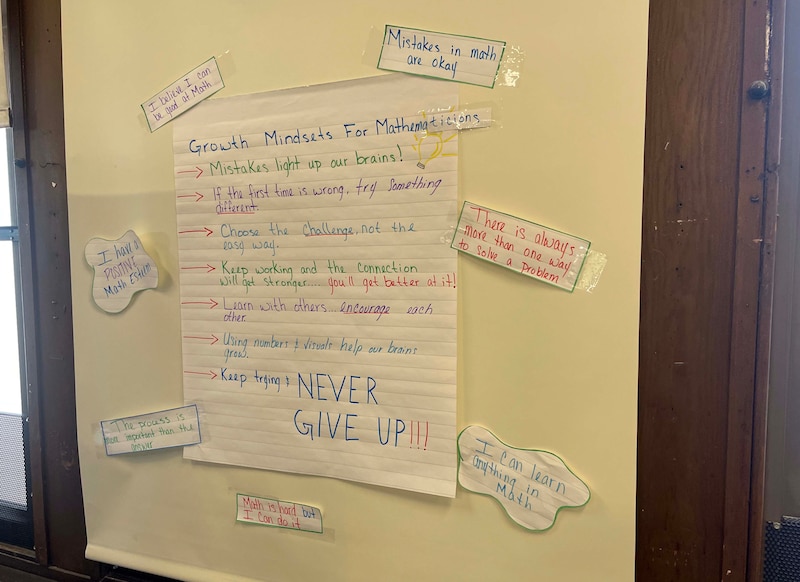 Mistakes in math
are okay
I believe I can
be good at Math...
Growth Mindsets For Mathematicians
Mistakes light up our brains!
If the first time is wrong, try something
different.
Choose the challenge, not the
easy way.
Keep working and the connection
will get stronger.... you'll get better at it!
Learn with others... encourage each
other.
Using numbers & visuals help our brains
grow.
Keep trying & NEVER
GIVE UP!!!
There is always
more than one way
to solve a problem
I have a
POSITIVE
Math Esteem
The process is
more important than the
answer
I can learn
anything in
Math
Math is hard but
I can do it